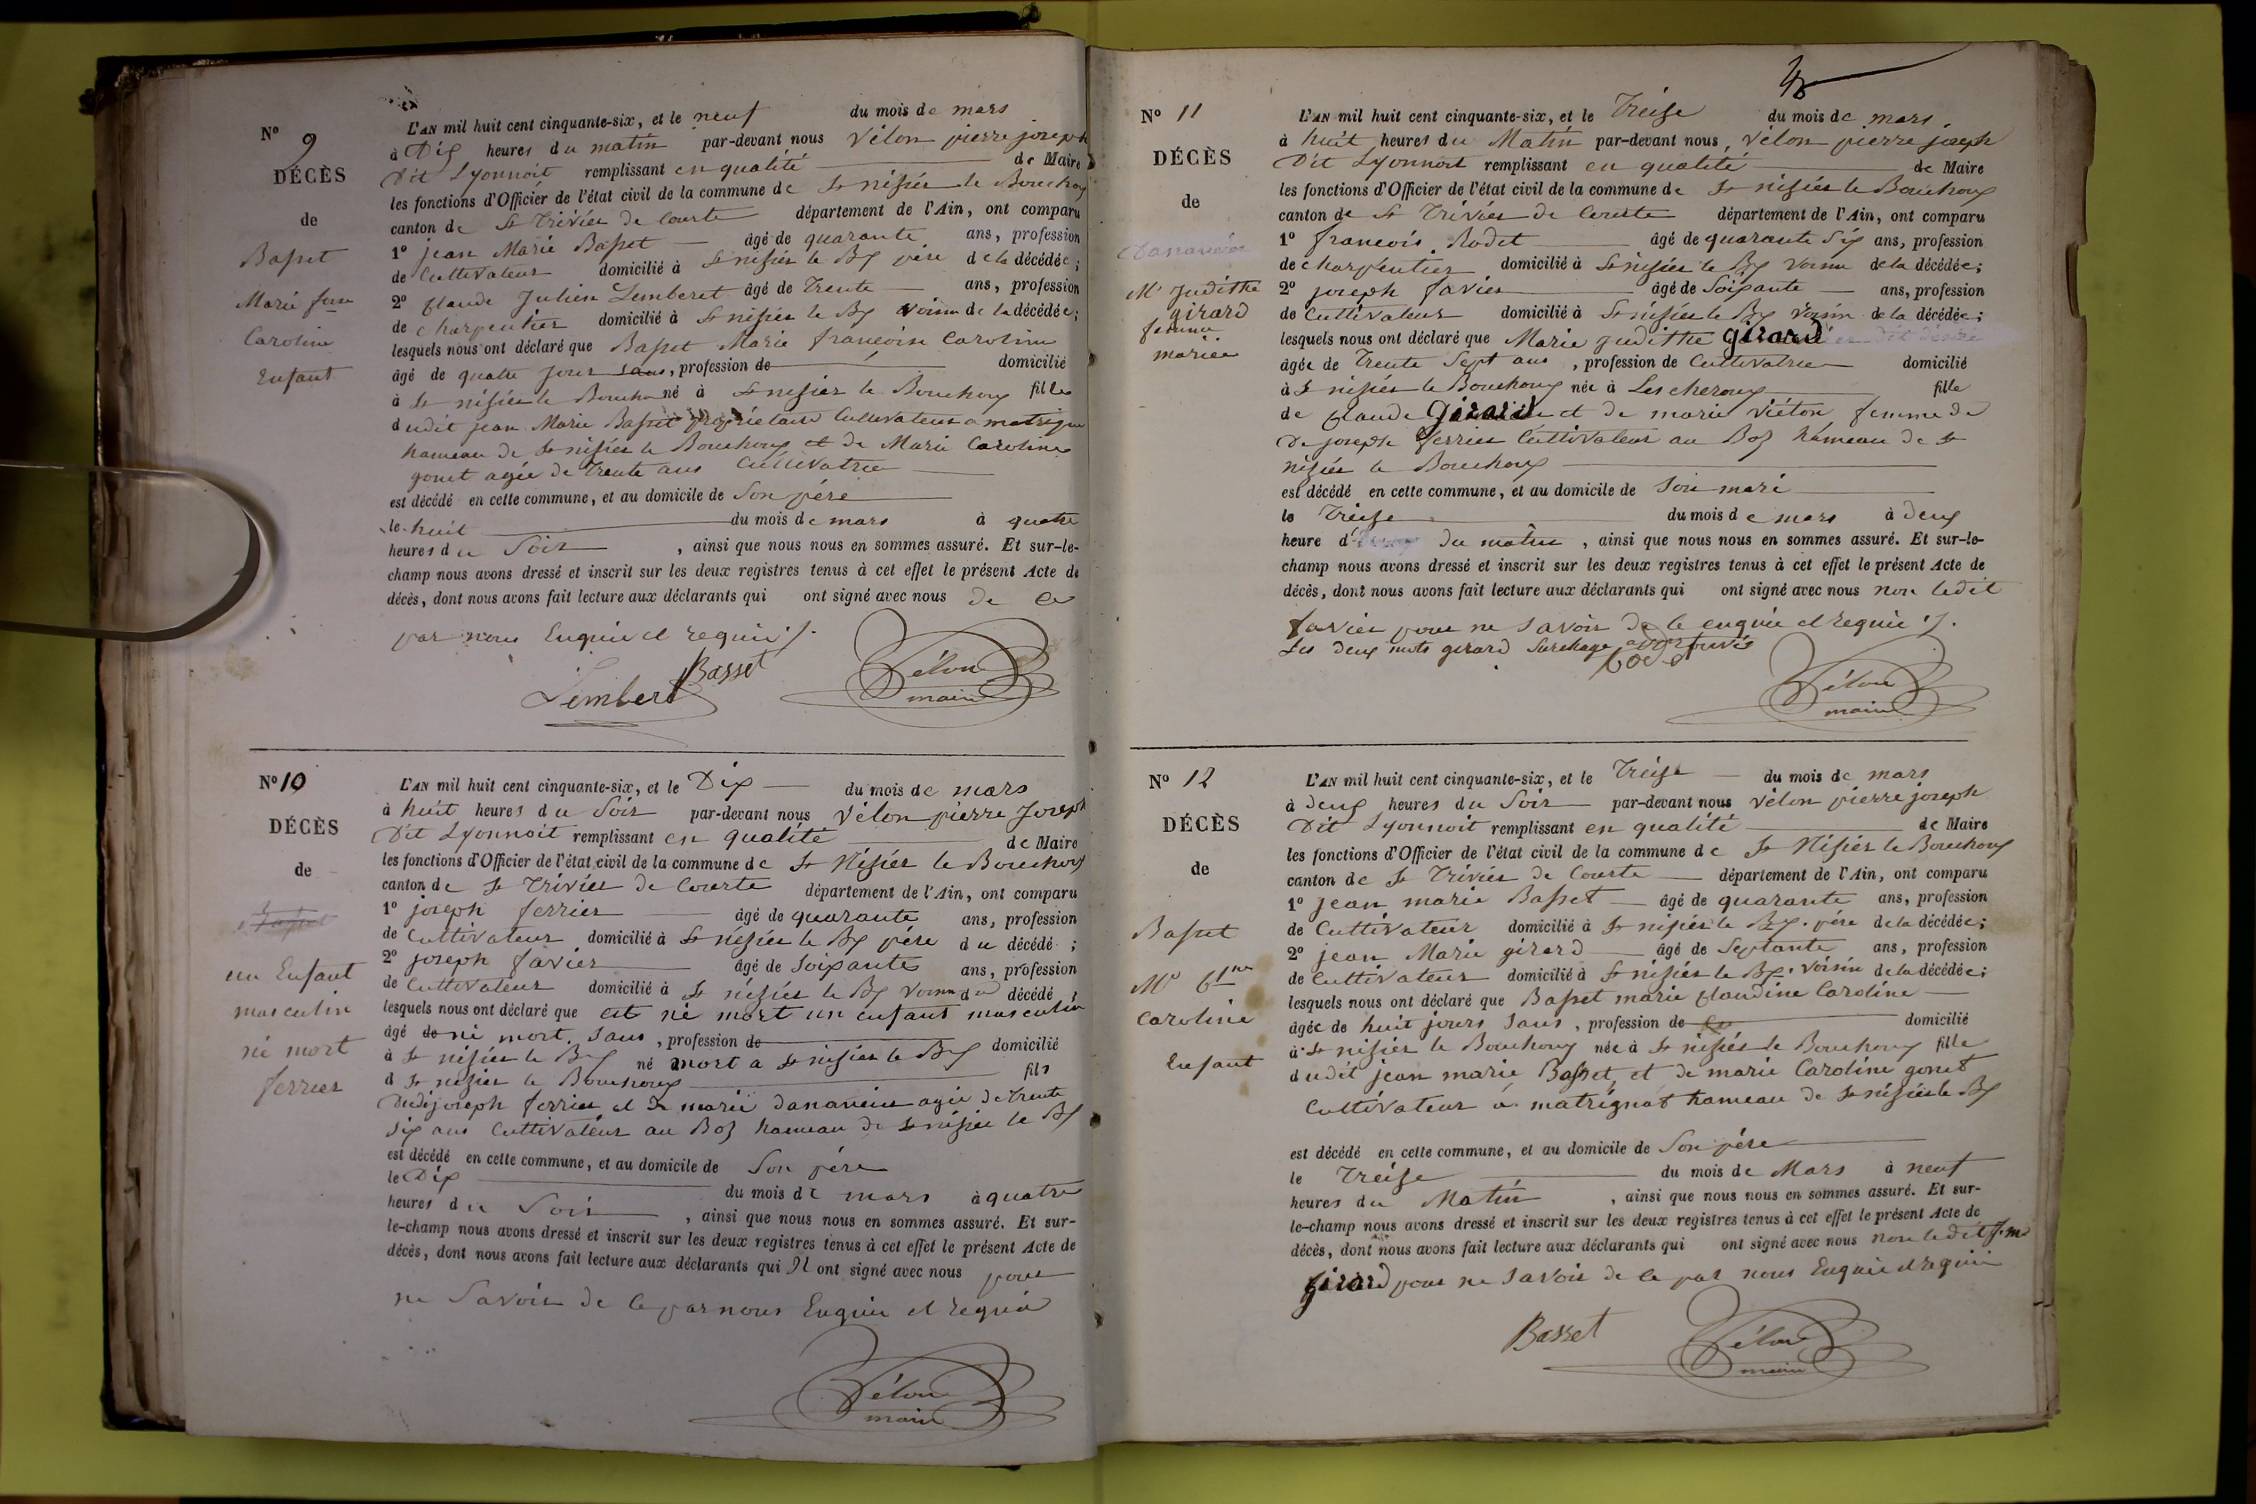 Nº 9
DÉCÈS
de
Basset
Marie fcoise
Caroline
Enfant
L'AN mil huit cent cinquante-six, et le neuf du mois de mars
à Dix heures du matin par-devant nous Vélon pierre joseph
Dit Lyonnoit remplissant en qualité de Maire
les fonctions d'Officier de l'état civil de la commune de St nisier le Bouchoux
canton de St Trivier de Courte département de l'Ain, ont comparu
1º jean Marie Basset âgé de quarante ans, profession
de Cultivateur domicilié à St nisier le Bx père de la décédée;
2º Claude Julien Lemberet âgé de Trente ans, profession
de charpentier domicilié à St nisier le Bx voisin de la décédée;
lesquels nous ont déclaré que Basset Marie francoise Caroline
âgé de quatre jour sans, profession de domicilié
à St nisier le Bouchou né à St nisier le Bouchoux fille
dudit jean Marie Basset propriétaire Cultivateur a matrignat
hameau de St nisier le Bouchoux et de Marie Caroline
gonet agée de Trente ans Cultivatrice
est décédé en cette commune, et au domicile de Son père
le huit du mois de mars à quatre
heures du Soir, ainsi que nous nous en sommes assuré. Et sur-le-
champ nous avons dressé et inscrit sur les deux registres tenus à cet effet le présent Acte de
décès, dont nous avons fait lecture aux déclarants qui ont signé avec nous de ce
par nous Enquie et requie ./.
Basset
Lemberet
Vélon
maire
Nº 10
DÉCÈS
de
un Enfant
masculin
né mort
ferrier
L'AN mil huit cent cinquante-six, et le Dix du mois de mars
à huit heures du Soir par-devant nous Vélon pierre Joseph
Dit Lyonnoit remplissant en qualité de Maire
les fonctions d'Officier de l'état civil de la commune de St Nisier le Bouchoux
canton de St Trivier de Courte département de l'Ain, ont comparu
1º joseph ferrier âgé de quarante ans, profession
de Cultivateur domicilié à St nisier le Bx père du décédé;
2º joseph favier âgé de Soixante ans, profession
de Cultivateur domicilié à St nisier le Bx voisin du décédé;
lesquels nous ont déclaré que est né mort un enfant masculin
âgé de né mort, Sans, profession de domicilié
à St nisier le Bx né mort a St nisier le Bx
d St nisier le Bouchoux fils
Dudit joseph ferrier et De marie Danancier agée de Trente
Six ans Cultivateur au Boz hameau de St nisier le Bx
est décédé en cette commune, et au domicile de Son père
le Dix du mois de mars à quatre
heures du Soir, ainsi que nous nous en sommes assuré. Et sur-
le-champ nous avons dressé et inscrit sur les deux registres tenus à cet effet le présent Acte de
décès, dont nous avons fait lecture aux déclarants qui N ont signé avec nous pour
ne Savoir de ce par nous Enquie et requie
Vélon
maire
Nº 11
DÉCÈS
de
Mie Judithe
girard
femme
mariée
L'AN mil huit cent cinquante-six, et le Treize du mois de mars,
à huit heures du Matin par-devant nous, Vélon pierre joseph
Dit Lyonnoit remplissant en qualité de Maire
les fonctions d'Officier de l'état civil de la commune de St nisier le Bouchoux
canton de St Trivier de Courte département de l'Ain, ont comparu
1º francois Rodet âgé de quarante Six ans, profession
de charpentier domicilié à St nisier le Bx voisin de la décédée;
2º joseph favier âgé de Soixante ans, profession
de Cultivateur domicilié à St nisier le Bx voisin de la décédée;
lesquels nous ont déclaré que Marie judithe girard
âgée de Trente Sept ans, profession de Cultivatrice domicilié
à St nisier le Bouchoux née à Lescheroux fille
de Claude Girard et de marie Viéton femme de
De joseph ferrier Cultivateur au Boz hameau de St
nisier le Bouchoux
est décédé en cette commune, et au domicile de Son mari
le Treize du mois de mars à deux
heure d du matin, ainsi que nous nous en sommes assuré. Et sur-le-
champ nous avons dressé et inscrit sur les deux registres tenus à cet effet le présent Acte de
décès, dont nous avons fait lecture aux déclarants qui ont signé avec nous non ledit
favier pour ne Savoir de ce enquie et requie ./.
Les deux mots girard Surchage approuvés
Rodet
Vélon
maire
Nº 12
DÉCÈS
de
Basset
Mie Cline
Caroline
Enfant
L'AN mil huit cent cinquante-six, et le Treize du mois de mars
à deux heures du Soir par-devant nous Vélon pierre joseph
Dit Lyonnoit remplissant en qualité de Maire
les fonctions d'Officier de l'état civil de la commune de St Nisier le Bouchoux
canton de St Trivier de Courte département de l'Ain, ont comparu
1º jean marie Basset âgé de quarante ans, profession
de Cultivateur domicilié à St nisier le Bx père de la décédée;
2º jean Marie girard âgé de Septante ans, profession
de Cultivateur domicilié à St nisier le Bx voisin de la décédée;
lesquels nous ont déclaré que Basset marie Claudine Caroline
âgée de huit jours Sans, profession de domicilié
à St nisier le Bouchoux née à St nisier le Bouchoux fille
dudit jean marie Basset, et de marie Caroline gonet
Cultivateur a matrignat hameau de St nisier le Bx
est décédé en cette commune, et au domicile de Son père
le Treize du mois de Mars à neuf
heures du Matin, ainsi que nous nous en sommes assuré. Et sur-
le-champ nous avons dressé et inscrit sur les deux registres tenus à cet effet le présent Acte de
décès, dont nous avons fait lecture aux déclarants qui ont signé avec nous non ledit
girard pour ne Savoir de ce par nous Enquie et requie
Basset
Vélon
maire